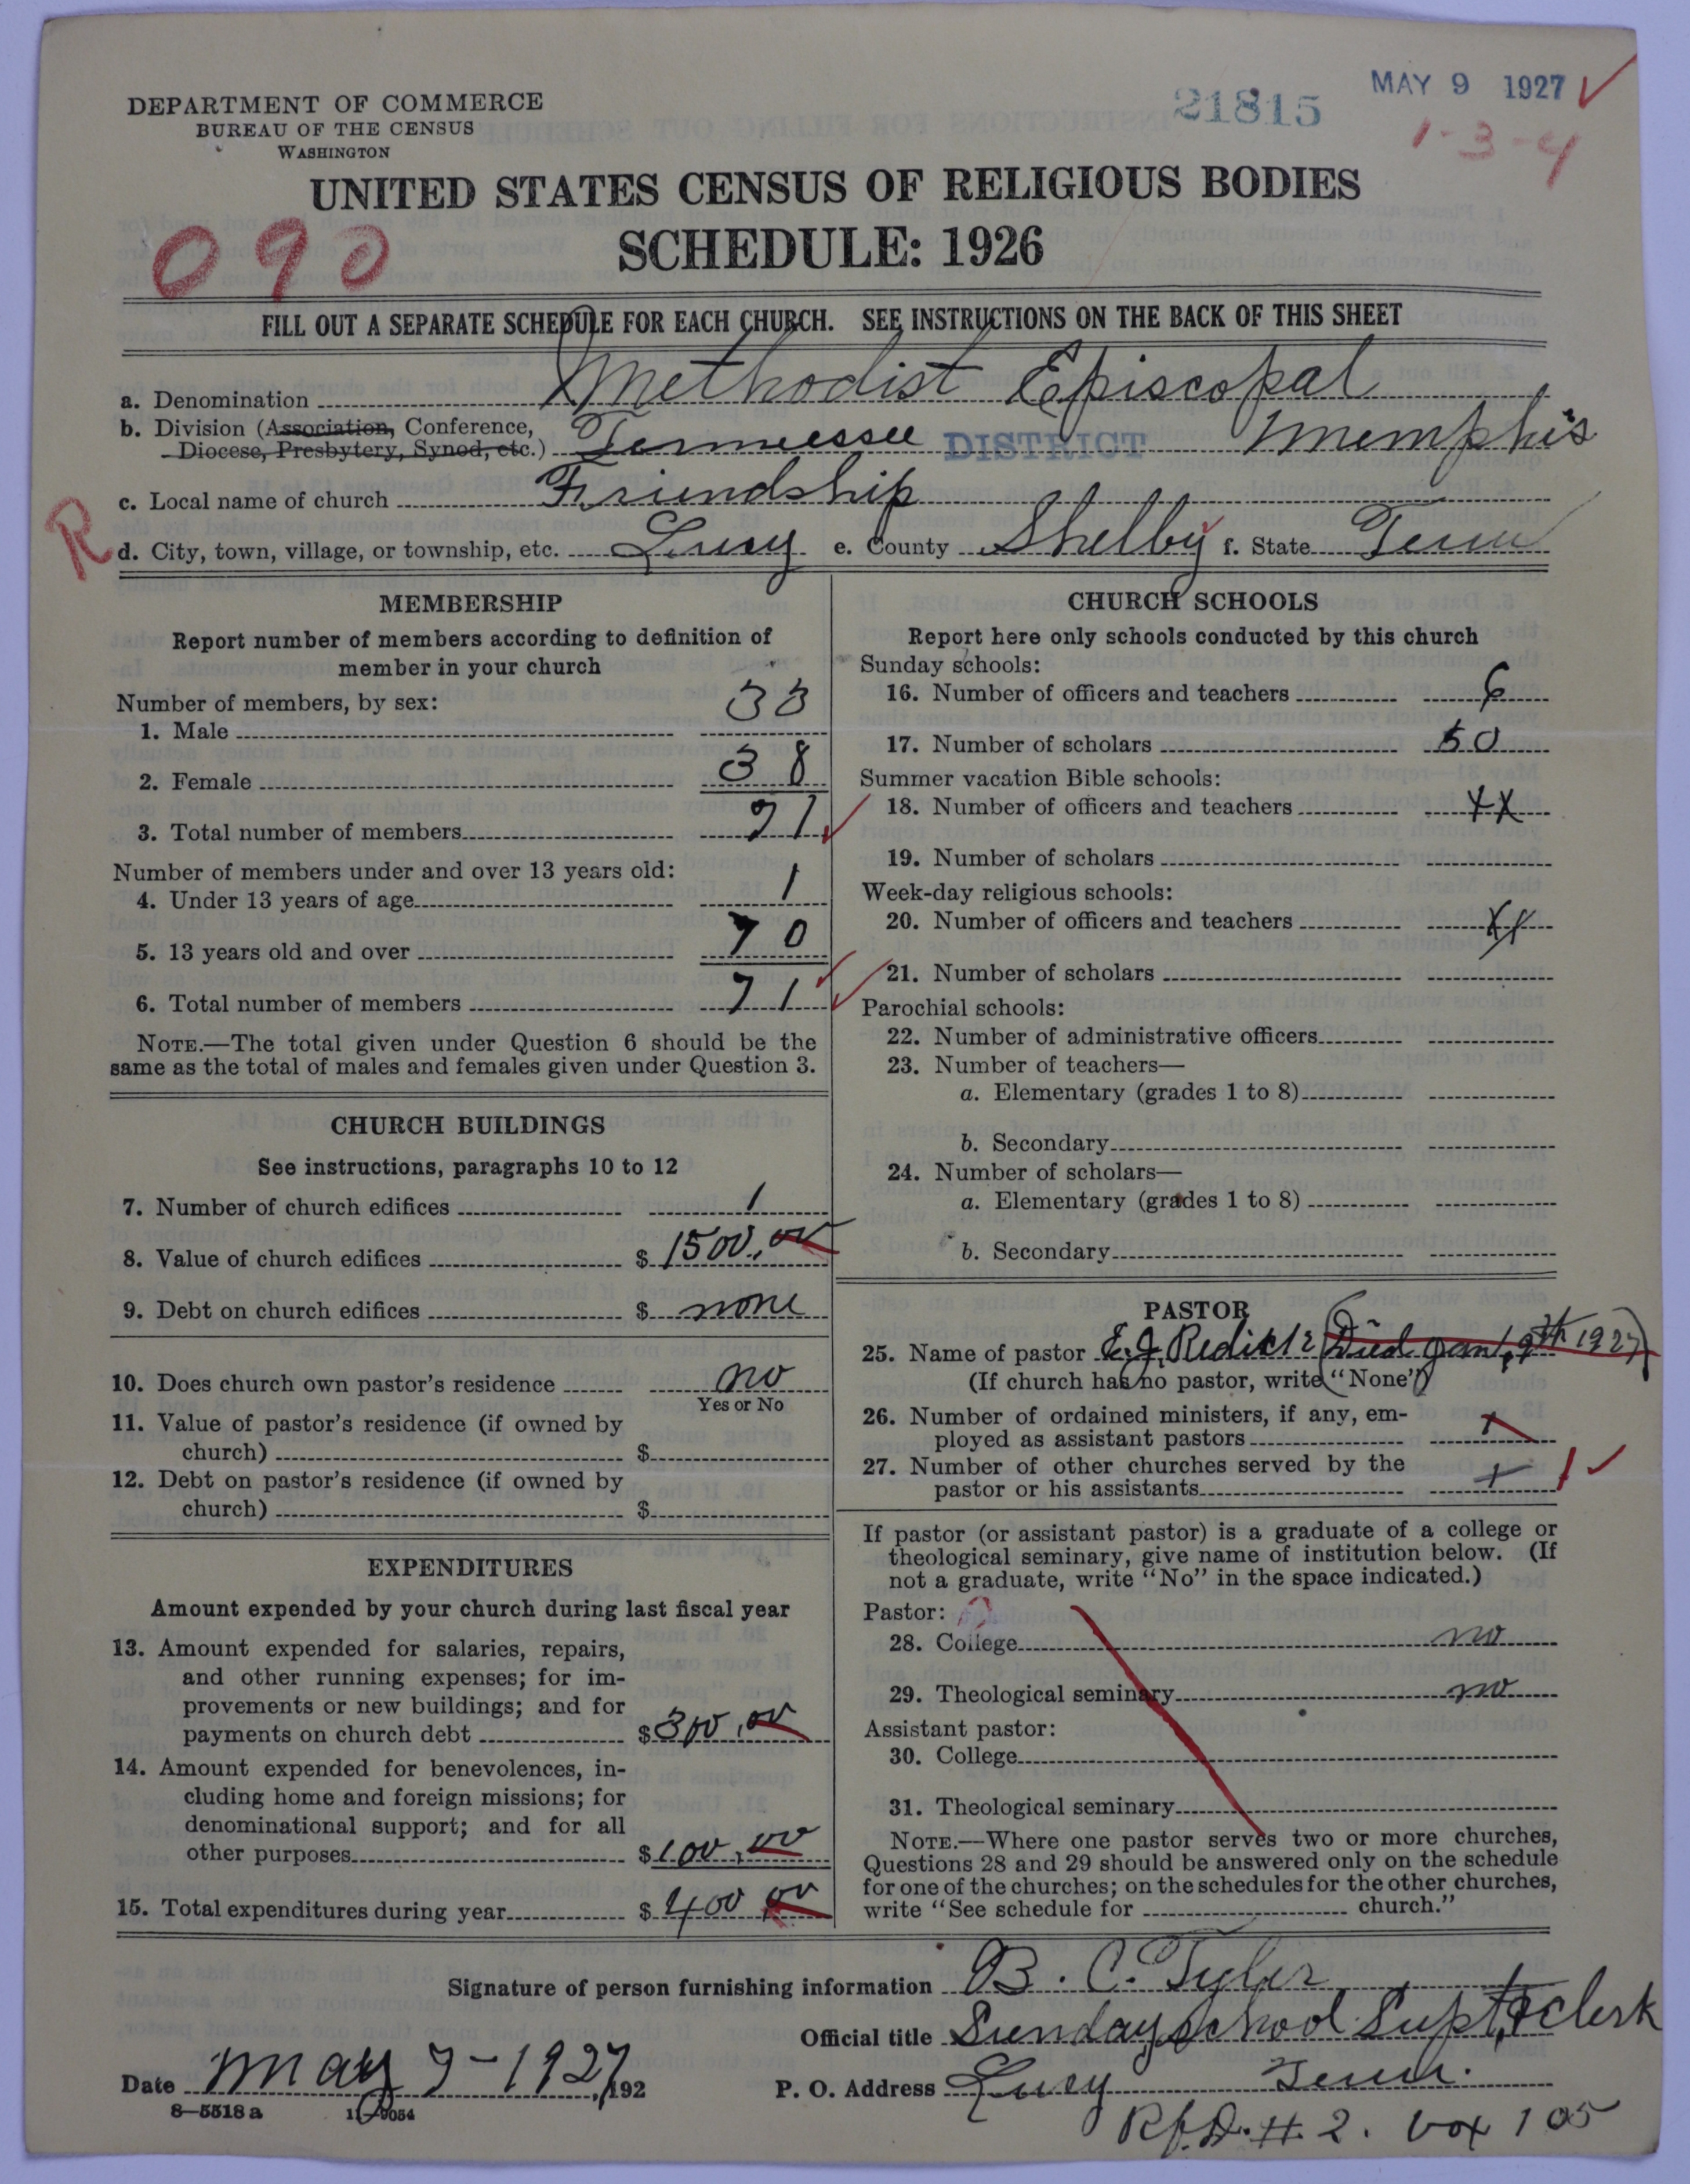 DEPARTMENT OF COMMERCE
BUREAU OF THE CENSUS
WASHINGTON
21815
MAY 9 1927
1-3-4
UNITED STATES CENSUS OF RELIGIOUS BODIES
SCHEDULE: 1926
090
FILL OUT A SEPARATE SCHEDULE FOR EACH CHURCH. SEE INSTRUCTIONS ON THE BACK OF THIS SHEET
a. Denomination Methodist Episcopal
b. Division (Association, Conference, Diocese, Presbytery, Synod, etc.) Tennessee DISTRICT Memphis
c. Local name of church Friendship
R
d. City, town, village, or township, etc. Lucy e. County Shelby f. State Tenn
MEMBERSHIP
Report number of members according to definition of
member in your church
Number of members, by sex:
1. Male 33
2. Female 38
3. Total number of members 71
Number of members under and over 13 years old:
4. Under 13 years of age 1
5. 13 years old and over 70
6. Total number of members 71
NOTE.—The total given under Question 6 should be the
same as the total of males and females given under Question 3.
CHURCH BUILDINGS
See instructions, paragraphs 10 to 12
7. Number of church edifices 1
8. Value of church edifices $ 1500.00
9. Debt on church edifices $ none
10. Does church own pastor's residence no
Yes or No
11. Value of pastor's residence (if owned by
church) $
12. Debt on pastor's residence (if owned by
church) $
EXPENDITURES
Amount expended by your church during last fiscal year
13. Amount expended for salaries, repairs,
and other running expenses; for im-
provements or new buildings; and for
payments on church debt $ 300.00
14. Amount expended for benevolences, in-
cluding home and foreign missions; for
denominational support; and for all
other purposes $ 100.00
15. Total expenditures during year $ 400 00
CHURCH SCHOOLS
Report here only schools conducted by this church
Sunday schools:
16. Number of officers and teachers 6
17. Number of scholars 50
Summer vacation Bible schools:
18. Number of officers and teachers xx
19. Number of scholars
Week-day religious schools:
20. Number of officers and teachers xx
21. Number of scholars
Parochial schools:
22. Number of administrative officers
23. Number of teachers—
a. Elementary (grades 1 to 8)
b. Secondary
24. Number of scholars—
a. Elementary (grades 1 to 8)
b. Secondary
PASTOR
25. Name of pastor E. J. (Died Jan, 9th 1927)
(If church has no pastor, write "None")
26. Number of ordained ministers, if any, em-
ployed as assistant pastors x
27. Number of other churches served by the
pastor or his assistants x 1
If pastor (or assistant pastor) is a graduate of a college or
theological seminary, give name of institution below. (If
not a graduate, write "No" in the space indicated.)
Pastor:
28. College no
29. Theological seminary no
Assistant pastor:
30. College
31. Theological seminary
NOTE.—Where one pastor serves two or more churches,
Questions 28 and 29 should be answered only on the schedule
for one of the churches; on the schedules for the other churches,
write "See schedule for church."
Signature of person furnishing information B. C. Tyler
Official title Sunday school Supt, & clerk
Date may 7-1927, 192
P. O. Address Lucy Tenn.
8-5518a 11-9054
R.f.D. #. 2. box 105